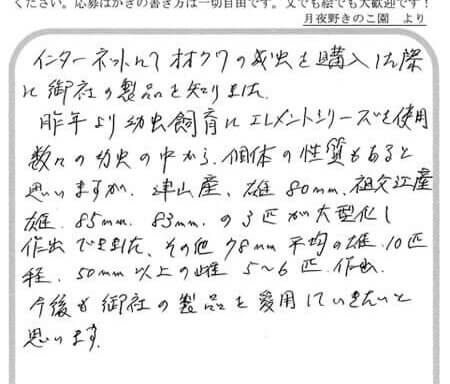 ください。応募はがきの書き方は一切自由です。文でも絵でも大歓迎です！
月夜野きのこ園　より
インターネットにてオオクワの成虫を購入した際
に御社の製品を知りました。
昨年より幼虫飼育にエレメントシリーズを使用
数々の幼虫の中から、個体の性質もあると
思いますが、津山産、雄80mm、祖父江産
雄、85mm、83mm、の3匹が大型化し
作出できました、その他78mm平均の雄、10匹
程、50mm以上の雌5〜6匹、作出、
今後も御社の製品を愛用していきたいと
思います。